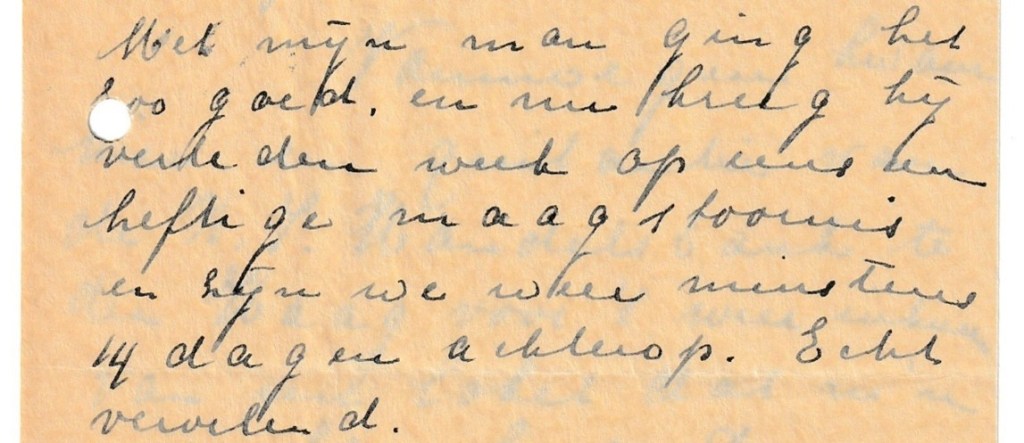 Met mijn man ging het
zoo goed, en nu kreeg hij
verleden week opeens een
heftige maagstoornis
en zijn we weer minstens
14 dagen achterop. Echt
vervelend.